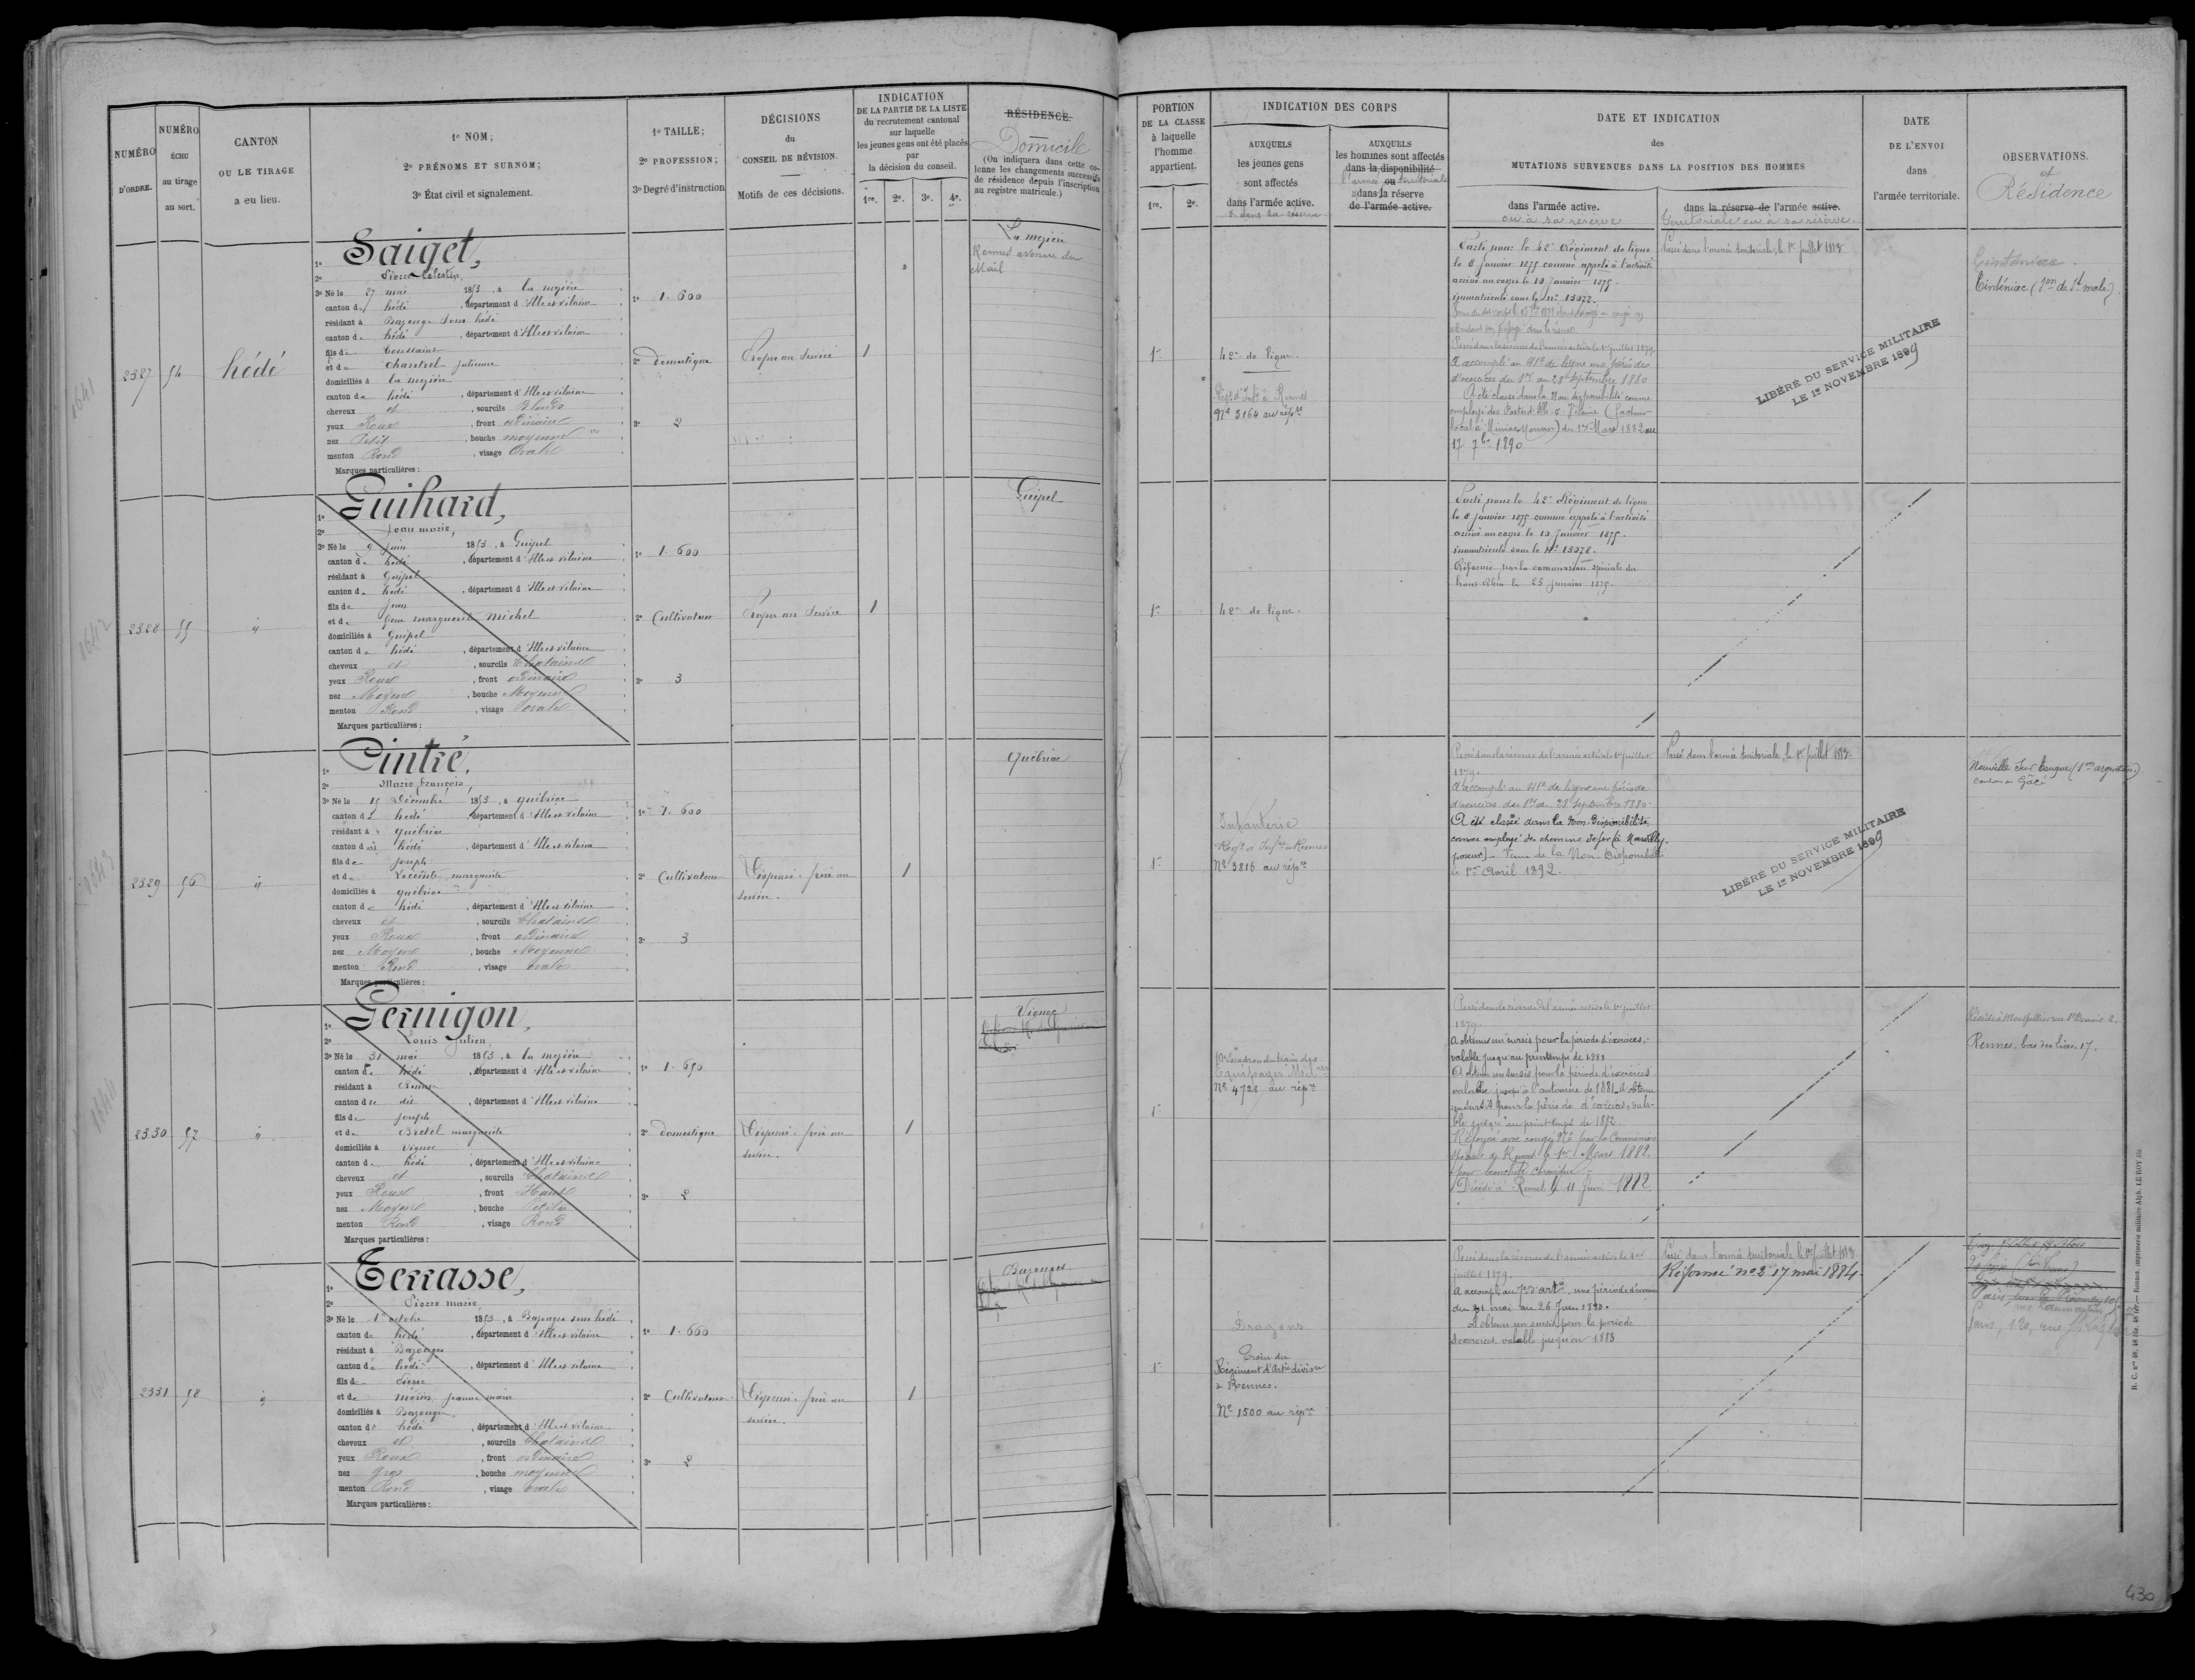 NUMÉRO D'ORDRE.
NUMÉRO ÉCHU au tirage au sort.
CANTON OU LE TIRAGE a eu lieu.
1º NOM;
2º PRÉNOMS ET SURNOM;
3º État civil et signalement.
1º TAILLE;
2º PROFESSION;
3º Degré d'instruction
DÉCISIONS du CONSEIL DE RÉVISION.
Motifs de ces décisions.
INDICATION
DE LA PARTIE DE LA LISTE
du recrutement cantonal
sur laquelle
les jeunes gens ont été placés
par
la décision du conseil.
1re. 2e. 3e. 4e.
RÉSIDENCE.
Domicile
(On indiquera dans cette co-
lonne les changements successifs
de résidence depuis l'inscription
au registre matricule.)
PORTION
DE LA CLASSE
à laquelle
l'homme
appartient.
1re. 2e.
INDICATION DES CORPS
AUXQUELS
les jeunes gens
sont affectés
dans l'armée active.
& dans la réserve
AUXQUELS
les hommes sont affectés
dans la disponibilité
ou
l'armée territoriale
dans la réserve
de l'armée active.
DATE ET INDICATION
des
MUTATIONS SURVENUES DANS LA POSITION DES HOMMES
dans l'armée active.
ou à sa réserve
dans la réserve de l'armée active.
territoriale ou à sa réserve.
DATE
DE L'ENVOI
dans
l'armée territoriale.
OBSERVATIONS.
et
Résidence
2327 54 hédé
1º Saiget,
2º Pierre Célestin,
3º Né le 27 mai 1853, à La mezière
canton de hédé, département d'Ille et vilaine
résidant à Bazouge sous hédé
canton de hédé, département d'Ille et vilaine
fils de Toussaint
et de Chantrel Julienne
domiciliés à La mezière
canton de hédé, département d'Ille et vilaine
cheveux et, sourcils Blonds
yeux Roux, front ordinaire
nez Petit, bouche moyenne
menton Rond, visage Ovale
Marques particulières:
1º 1.600
2º domestique
3º 2
Propre au service
1
La mezière
Rennes avenue du
Mail
1re
42e de ligne.
Régt d'Inf. à Rennes
Nº 3164 au répre
Parti pour le 42e Régiment de ligne
le 8 janvier 1875 comme appelé à l'activité
arrivé au corps le 10 janvier 1875.
immatriculé sous le nº 13077.
Passé dans la réserve de l'armée active le 1er juillet 1879.
A accompli au 41e de ligne une période
d'exercices du 1er au 28 septembre 1880
A été classé dans la Non disponibilité comme
employé des Postes d'Ille-&-Vilaine (facteur
local à Miniac Morvan) du 1er Mars 1882 au
17 7bre 1890
Passé dans l'armée territoriale, le 1er juillet 1888
LIBÉRÉ DU SERVICE MILITAIRE
LE 1er NOVEMBRE 1899
Tinténiac.
Tinténiac (son de St malo)
2328 55 id
1º Guihard,
2º Jean marie,
3º Né le 9 juin 1853, à Guipel
canton de hédé, département d'Ille et vilaine
résidant à Guipel
canton de hédé, département d'Ille et vilaine
fils de Jean
et de feue marguerite Michel
domiciliés à Guipel
canton de hédé, département d'Ille et vilaine
cheveux et, sourcils Chatains
yeux Roux, front ordinaire
nez Moyen, bouche Moyenne
menton Rond, visage ovale
Marques particulières:
1º 1.600
2º Cultivateur
3º 3
Propre au service
1
Guipel
1re
42e de ligne.
Parti pour le 42e Régiment de ligne
le 8 janvier 1875 comme appelé à l'activité
arrivé au corps le 10 janvier 1875.
immatriculé sous le nº 13078.
Réformé par la commission spéciale du
haut Rhin le 23 janvier 1875.
2329 56 id
1º Cintré,
2º Marie françois,
3º Né le 15 Décembre 1853, à québriac
canton de hédé, département d'Ille et vilaine
résidant à québriac
canton de hédé, département d'Ille et vilaine
fils de Joseph
et de Lecointe marguerite
domiciliés à québriac
canton de hédé, département d'Ille et vilaine
cheveux et, sourcils Chatains
yeux Roux, front ordinaire
nez Moyen, bouche Moyenne
menton Rond, visage ovale
Marques particulières:
1º 1.600
2º Cultivateur
3º 3
Dispensé. frère au
service.
1
québriac
1re
Infanterie
Régt d'Infrie à Rennes
Nº 3816 au répre
Passé dans la réserve de l'armée active le 1er juillet
1879.
A accompli au 41e de ligne une période
d'exercices du 1er au 28 septembre 1880.
A été classé dans la Non-Disponibilité
comme employé des chemins de fer (à Neuilly.
poseur) - Venu de la Non-Disponibilité
le 1er Avril 1892.
Passé dans l'armée territoriale, le 1er juillet 1888
LIBÉRÉ DU SERVICE MILITAIRE
LE 1er NOVEMBRE 1899
Neuville sur Touques (son argentan)
canton de Gâcé
2330 57 id
1º Gernigon,
2º Louis Julien,
3º Né le 31 mai 1853, à La mezière
canton de hédé, département d'Ille et vilaine
résidant à Rennes
canton de dit, département d'Ille et vilaine
fils de Joseph
et de Bretel marguerite
domiciliés à Vignoc
canton de hédé, département d'Ille et vilaine
cheveux et, sourcils Chatains
yeux Roux, front Haut
nez Moyen, bouche Petite
menton Rond, visage Rond
Marques particulières:
1º 1.650
2º domestique
3º 2
Dispensé. frère au
service.
1
Vignoc
1re
10e Escadron du train des
Equipages Mil.res
Nº 4728 au répre
Passé dans la réserve de l'armée active le 1er juillet
1879.
A obtenu un sursis pour la période d'exercices,
valable jusqu'au printemps de 1881
A obtenu un sursis pour la période d'exercices
valable jusqu'à l'automne de 1881. A obtenu
un sursis pour la période d'exercices, vala-
ble jusqu'au printemps de 1882.
Réformé avec congé Nº 2 par la Commission
spéciale de Rennes le 1er Mars 1882.
pour bronchite chronique -
Décédé à Rennes le 11 juin 1882
Réside à Montpellier rue St Denis 2.
Rennes, bas des lices 17.
2331 58 id
1º Terrasse,
2º Pierre marie
3º Né le 1er octobre 1853, à Bazouges sous hédé
canton de hédé, département d'Ille et vilaine
résidant à Bazouges
canton de hédé, département d'Ille et vilaine
fils de Pierre
et de Jeanne marie
domiciliés à Bazouges
canton de hédé, département d'Ille et vilaine
cheveux et, sourcils Chatains
yeux Roux, front ordinaire
nez gros, bouche moyenne
menton Rond, visage ovale
Marques particulières:
1º 1.660
2º Cultivateur
3º 2
Dispensé. frère au
service.
1
Bazouges
1re
Dragons
Train du
Régiment d'Artie divisre
à Rennes.
Nº 1500 au répre
Passé dans la réserve de l'armée active le 1er
juillet 1879.
A accompli au 7e d'artie, une période d'exercices
du 31 mai au 26 Juin 1880.
A obtenu un sursis pour la période
d'exercices valable jusqu'en 1883
Passé dans l'armée territoriale le 1er Juillet 1888
Réformé nº 2 17 mai 1884.
Paris, 120, rue
R. C. nos 46, 48 bis, 48 ter. — Rennes, imprimerie militaire Alph. LE ROY fils
1641
1642
1643
1644
430